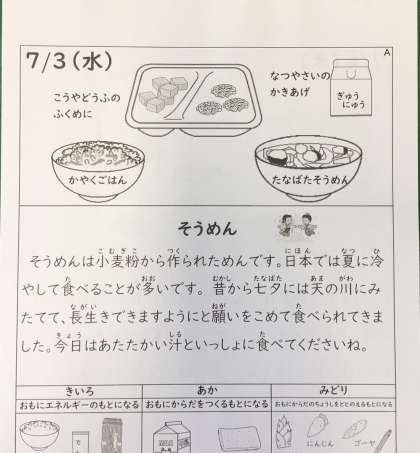 7/3(水)
A
こうやどうふの
ふくめに
なつやさいの
かきあげ
ぎゅう
にゅう
かやくごはん
たなばたそうめん
そうめん
そうめんは小麦粉から作られためんです。日本では夏に冷
やして食べることが多いです。昔から七夕には天の川にみ
たてて、長生きできますようにと願いをこめて食べられてきま
した。今日はあたたかい汁といっしょに食べてくださいね。
きいろ
あか
みどり
おもにエネルギーのもとになる
おもにからだをつくるもとになる
おもにからだのちょうしをととのえるもとになる
にんじん
ゴーヤ